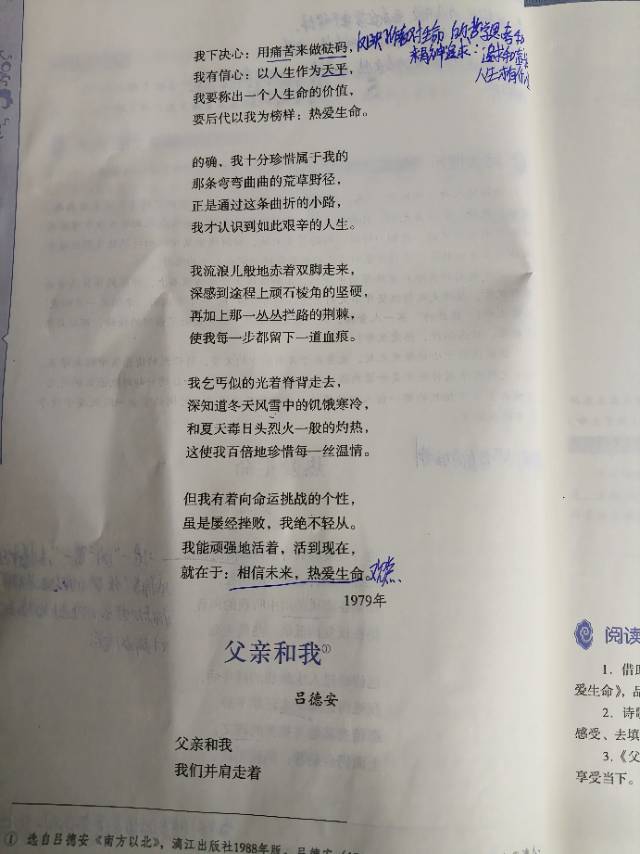 我下决心：用痛苦来做砝码，
我有信心：以人生作为天平，
我要称出一个人生命的价值，
要后代以我为榜样：热爱生命。
的确，我十分珍惜属于我的
那条弯弯曲曲的荒草野径，
正是通过这条曲折的小路，
我才认识到如此艰辛的人生。
我流浪儿般地赤着双脚走来，
深感到途程上顽石棱角的坚硬，
再加上那一丛丛拦路的荆棘，
使我每一步都留下一道血痕。
我乞丐似的光着脊背走去，
深知道冬天风雪中的饥饿寒冷，
和夏天毒日头烈火一般的灼热，
这使我百倍地珍惜每一丝温情。
但我有着向命运挑战的个性，
虽是屡经挫败，我绝不轻从。
我能顽强地活着，活到现在，
就在于：相信未来，热爱生命。
1979年
父亲和我①
吕德安
父亲和我
我们并肩走着
① 选自吕德安《南方以北》，漓江出版社1988年版。吕德安
阅读
1. 借
爱生命》，品
2. 诗
感受、去填
3.《父
享受当下。